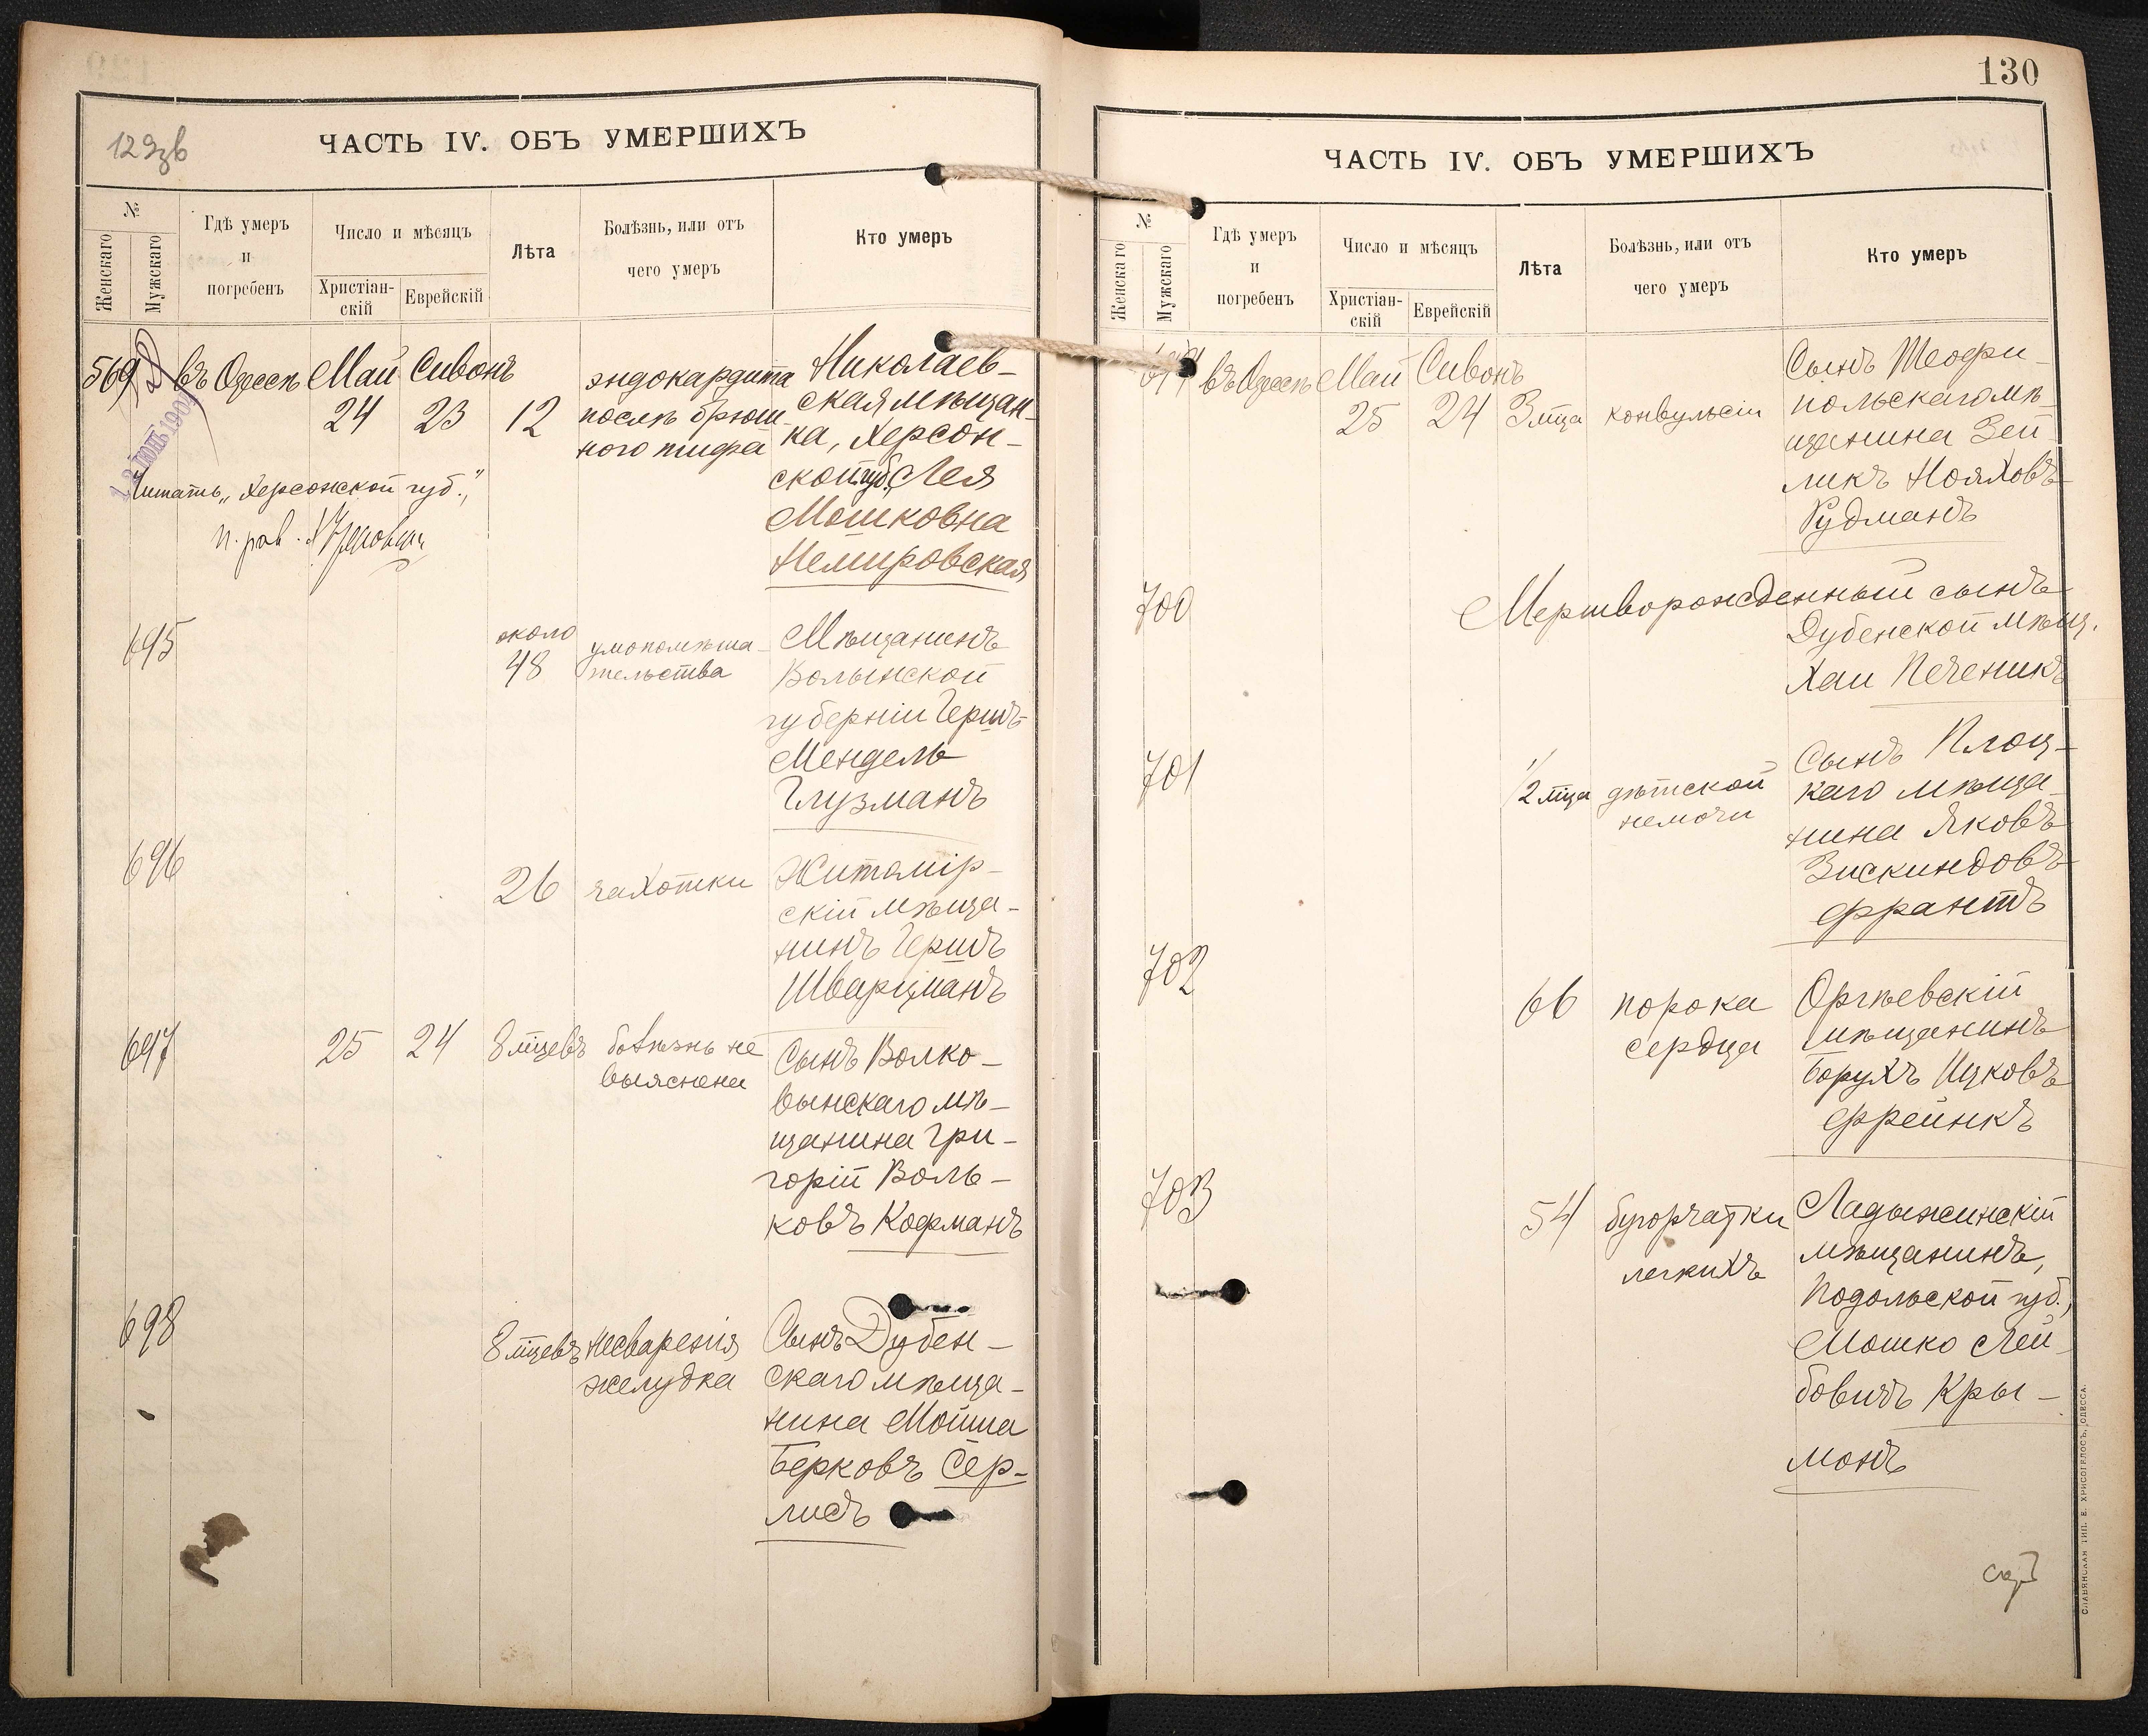 129зв
ЧАСТЬ IV. ОБЪ УМЕРШИХЪ
№
Женскаго
Мужскаго
Гдѣ умеръ
и
погребенъ
Число и мѣсяцъ
Христіан-
скій
Еврейскій
Лѣта
Болѣзнь, или отъ
чего умеръ
Кто умеръ
569
въ Одессѣ Май Сивонъ
24 23 12
эндокардита
послѣ брюш-
ного тифа
Николаев-
ская мѣщан-
ка, Херсон-
ской губ., Лея
Мошковна
Немировская
Читать „Херсонской губ.,"
695
около
48
умопомѣша-
тельства
Мѣщанинъ
Волынской
губерніи Герш-
Мендель
Глузманъ
696
26 чахотки
Житомір-
скій мѣща-
нинъ Гершъ
Шварцманъ
697
25 24 8 мцевъ
болѣзнь не
выяснена
Сынъ Волко-
вынскаго мѣ-
щанина Гри-
горій Воль-
ковъ Кофманъ
698
8 мцевъ
несваренія
желудка
Сынъ Дубен-
скаго мѣща-
нина Мойша
Берковъ Сер-
лисъ
130
ЧАСТЬ IV. ОБЪ УМЕРШИХЪ
№
Женскаго
Мужскаго
Гдѣ умеръ
и
погребенъ
Число и мѣсяцъ
Христіан-
скій
Еврейскій
Лѣта
Болѣзнь, или отъ
чего умеръ
Кто умеръ
699
въ Одессѣ Май Сивонъ
25 24 3 мца конвульсіи
Сынъ Теофи-
польскаго мѣ-
щанина Зей-
ликъ Нояховъ
Рудманъ
700
Мертворожденный сынъ
Дубенской мѣщ.
Хаи Печеникъ
701
1/2 мца
дѣтской
немочи
Сынъ Плоц-
каго мѣща-
нина Яковъ
Зискиндовъ
Франтъ
702
66
порока
сердца
Оргѣевскій
мѣщанинъ
Борухъ Ицковъ
Фрейнкъ
703
54
бугорчатки
легкихъ
Ладыжинскій
мѣщанинъ,
Подольской губ.,
Мошко Лей-
бовичъ Кры-
монъ
СЛАВЯНСКАЯ ТИП. Е. ХРИСОГЕЛОСЪ, ОДЕССА.